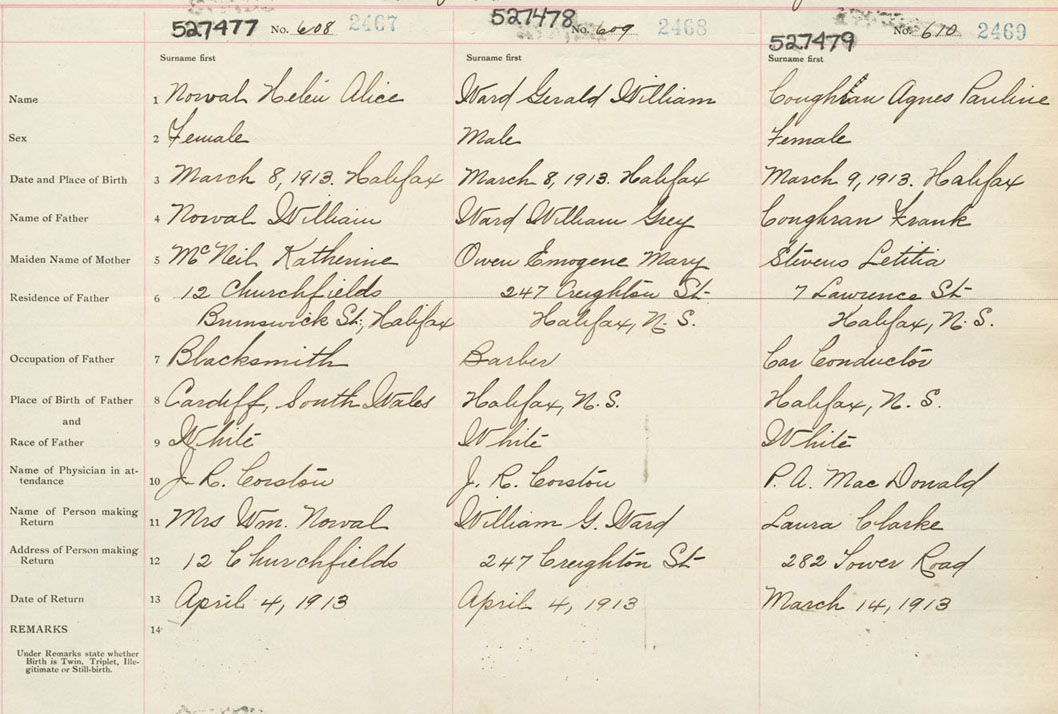 527477 No. 608 2467 527478 No. 609 2468 527479 No. 610 2469
Surname first Surname first Surname first
Name 1 Nowal Helen Alice Ward Gerald William Coughran Agnes Pauline
Sex 2 Female Male Female
Date and Place of Birth 3 March 8, 1913. Halifax March 8, 1913. Halifax March 9, 1913. Halifax
Name of Father 4 Nowal William Ward William Grey Coughran Frank
Maiden Name of Mother 5 McNeil Katherine Owen Emogene Mary Stevens Letitia
Residence of Father 6 12 Churchfields 247 Creighton St 7 Lawrence St
Brunswick St, Halifax Halifax, N.S. Halifax, N.S.
Occupation of Father 7 Blacksmith Barber Car Conductor
Place of Birth of Father 8 Cardiff, South Wales Halifax, N.S. Halifax, N.S.
and
Race of Father 9 White White White
Name of Physician in at-
tendance 10 J. R. Corston J. R. Corston P. A. MacDonald
Name of Person making
Return 11 Mrs Wm. Nowal William G. Ward Laura Clarke
Address of Person making
Return 12 12 Churchfields 247 Creighton St 282 Tower Road
Date of Return 13 April 4, 1913 April 4, 1913 March 14, 1913
REMARKS 14
Under Remarks state whether
Birth is Twin, Triplet, Ille-
gitimate or Still-birth.